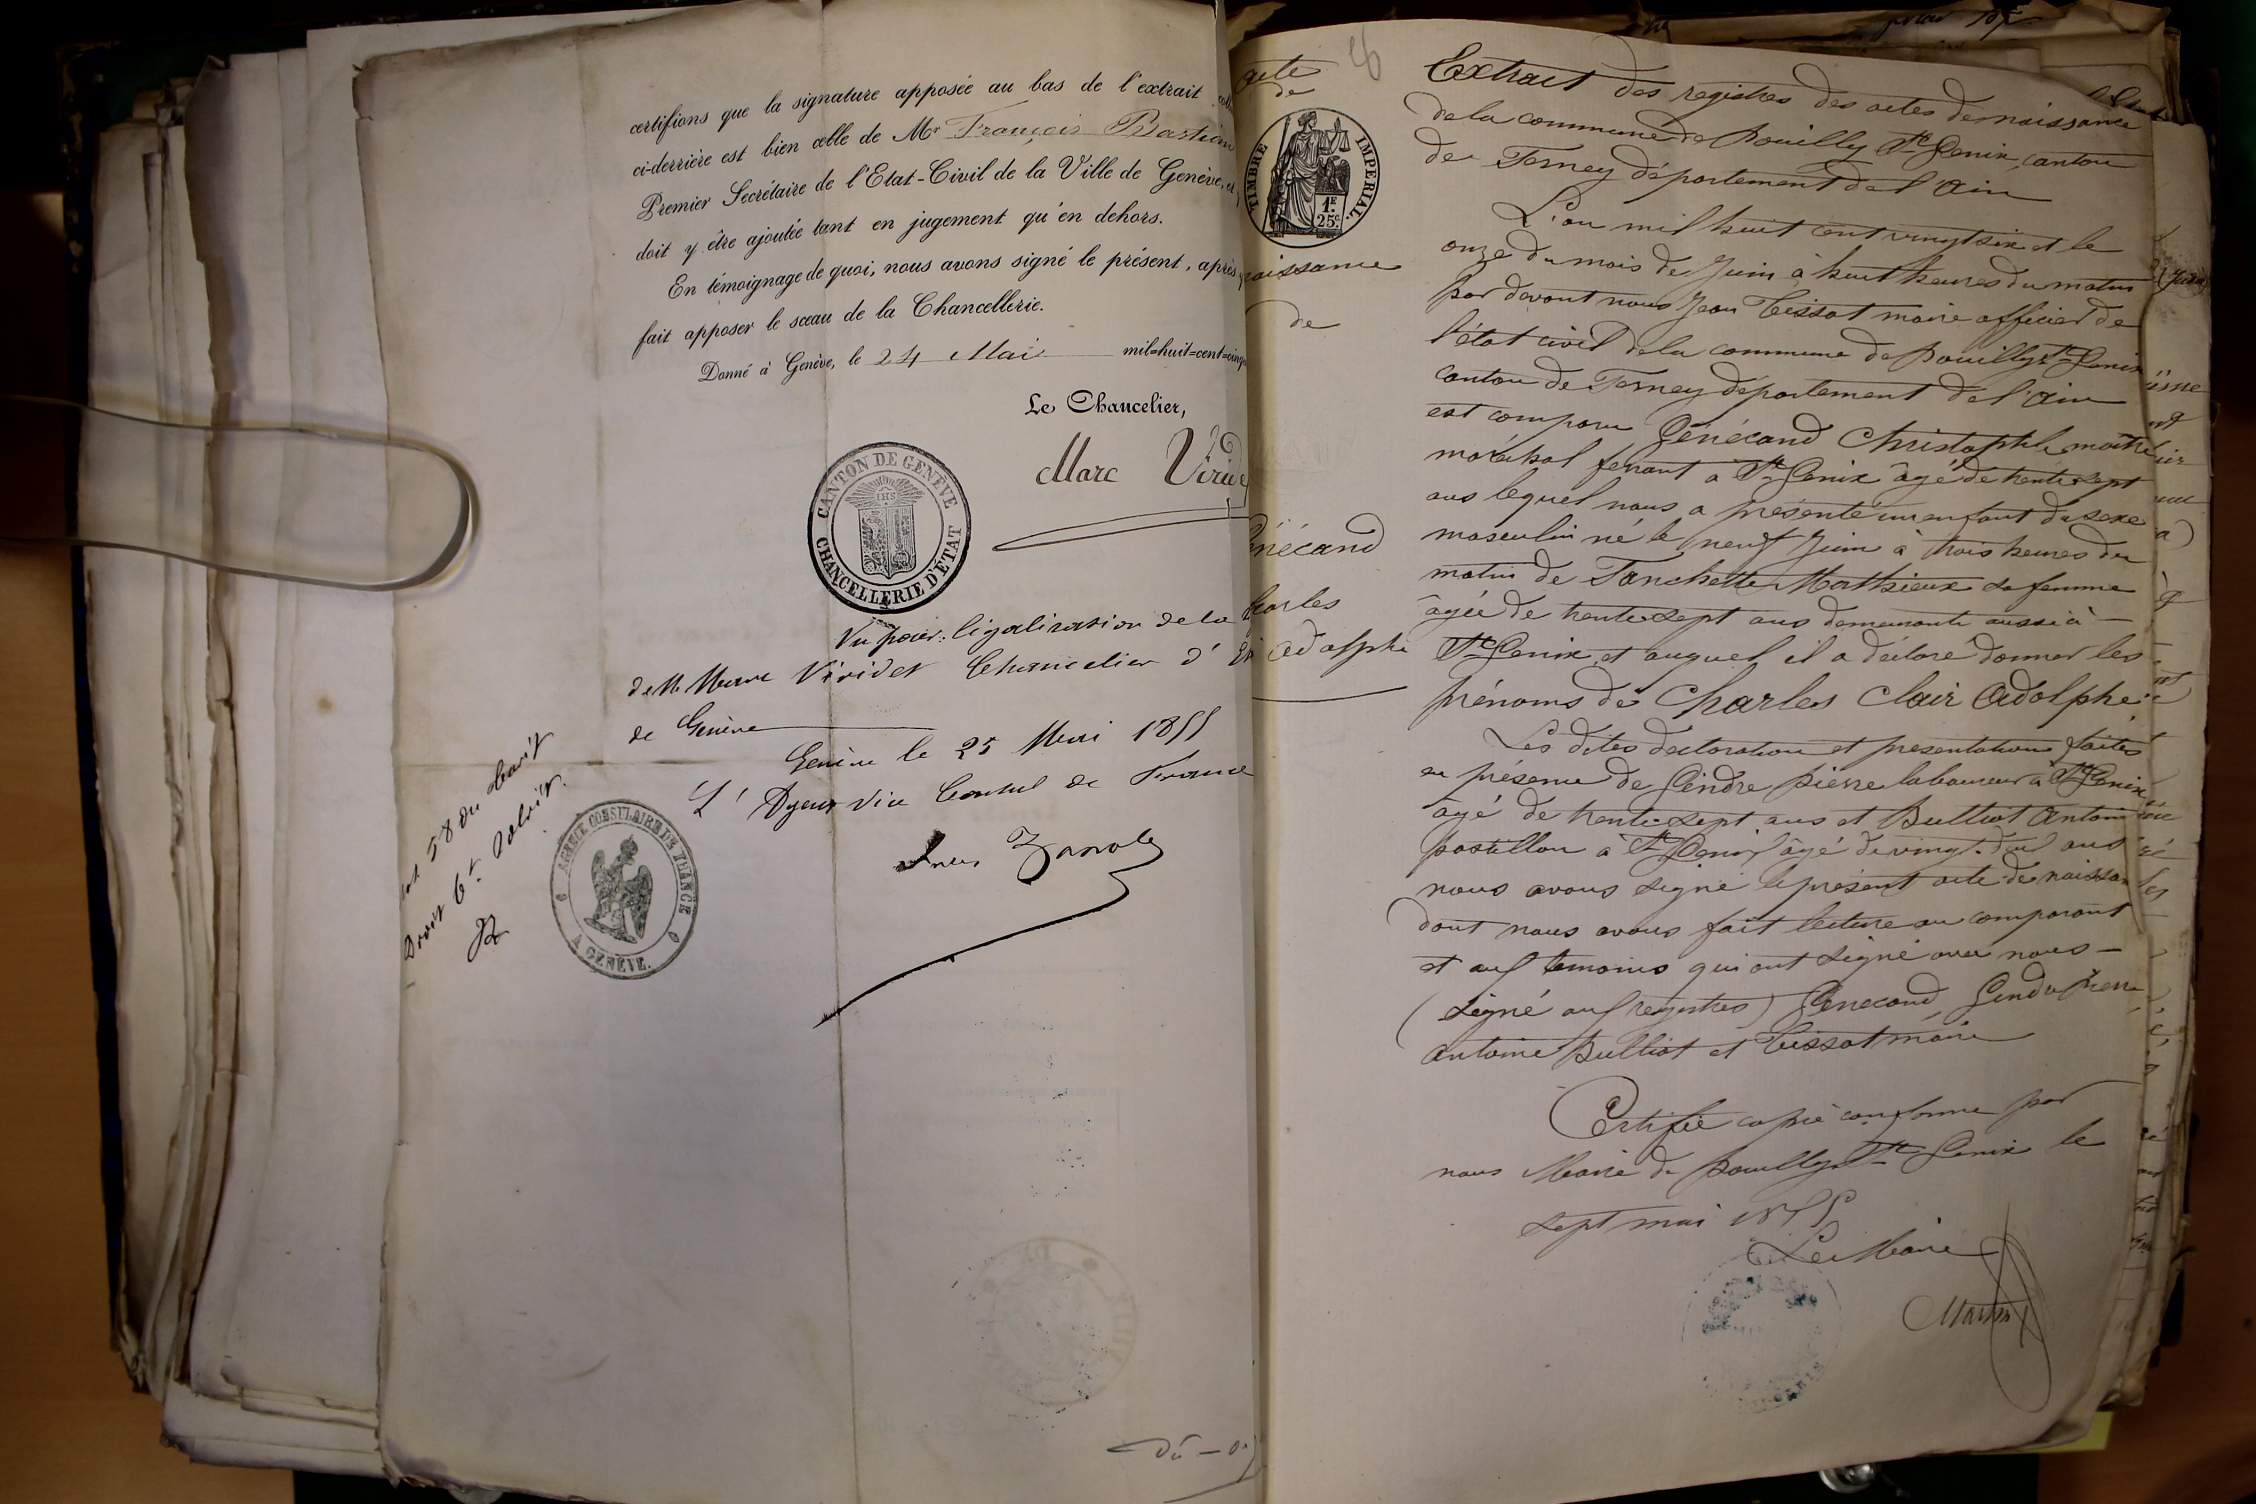 certifions que la signature apposée au bas de l'extrait
ci-derrière est bien celle de Mr François Bastian
Premier Secrétaire de l'Etat-Civil de la Ville de Genève, et
doit y être ajoutée tant en jugement qu'en dehors.
En témoignage de quoi, nous avons signé le présent, après
fait apposer le sceau de la Chancellerie.
Donné à Genève, le 24 Mai mil-huit-cent-cinq
Le Chancelier,
Marc Viride
CANTON DE GENÈVE
IHS
CHANCELLERIE D'ÉTAT
Vu pour légalisation de la
de M. Marc Viridet Chancelier d'
de Genève
Genève le 25 Mai 1855
L' Vice Consul de France
AGENCE CONSULAIRE DE FRANCE
A GENÈVE.
acte
de
TIMBRE IMPERIAL.
1F
25c.
naissance
de
énécand
Charles
Adolphe
Extrait des registres des actes de naissance
de la commune de Pouilly St Genix, canton
de Ferney département de l'ain
L'an mil huit cent vingt six et le
onze du mois de Juin à huit heures du matin
par devant nous Jean Tissot maire officier de
l'état civil de la commune de Pouilly St Genix
canton de Ferney département de l'ain
est comparu Génécand Christophe maitre
maréchal ferrant a St Genix âgé de trente sept
ans lequel nous a présenté un enfant du sexe
masculin né le neuf Juin à trois heures du
matin de Fanchette Mathieux sa femme
âgée de trente sept ans demeurante aussi à
St Genix, et auquel il a déclaré donner les
prénoms de Charles Clair Adolphe.
Les dites declaration et presentation faites
en présence de Gindre pierre laboureur à St Genix
âgé de trente sept ans et Bulliat Antoine
postillon a St Genix âgé de vingt ans
nous avons signé le présent acte de naissan
dont nous avons fait lecture au comparant
et aux temoins qui ont signé avec nous
(signé aux registres) Genecand, Gindre Pierre,
Antoine Bulliat et Tissot maire
Certifié copie conforme par
nous Maire de Pouilly St Genix le
sept mai 1855
Le Maire
Martin